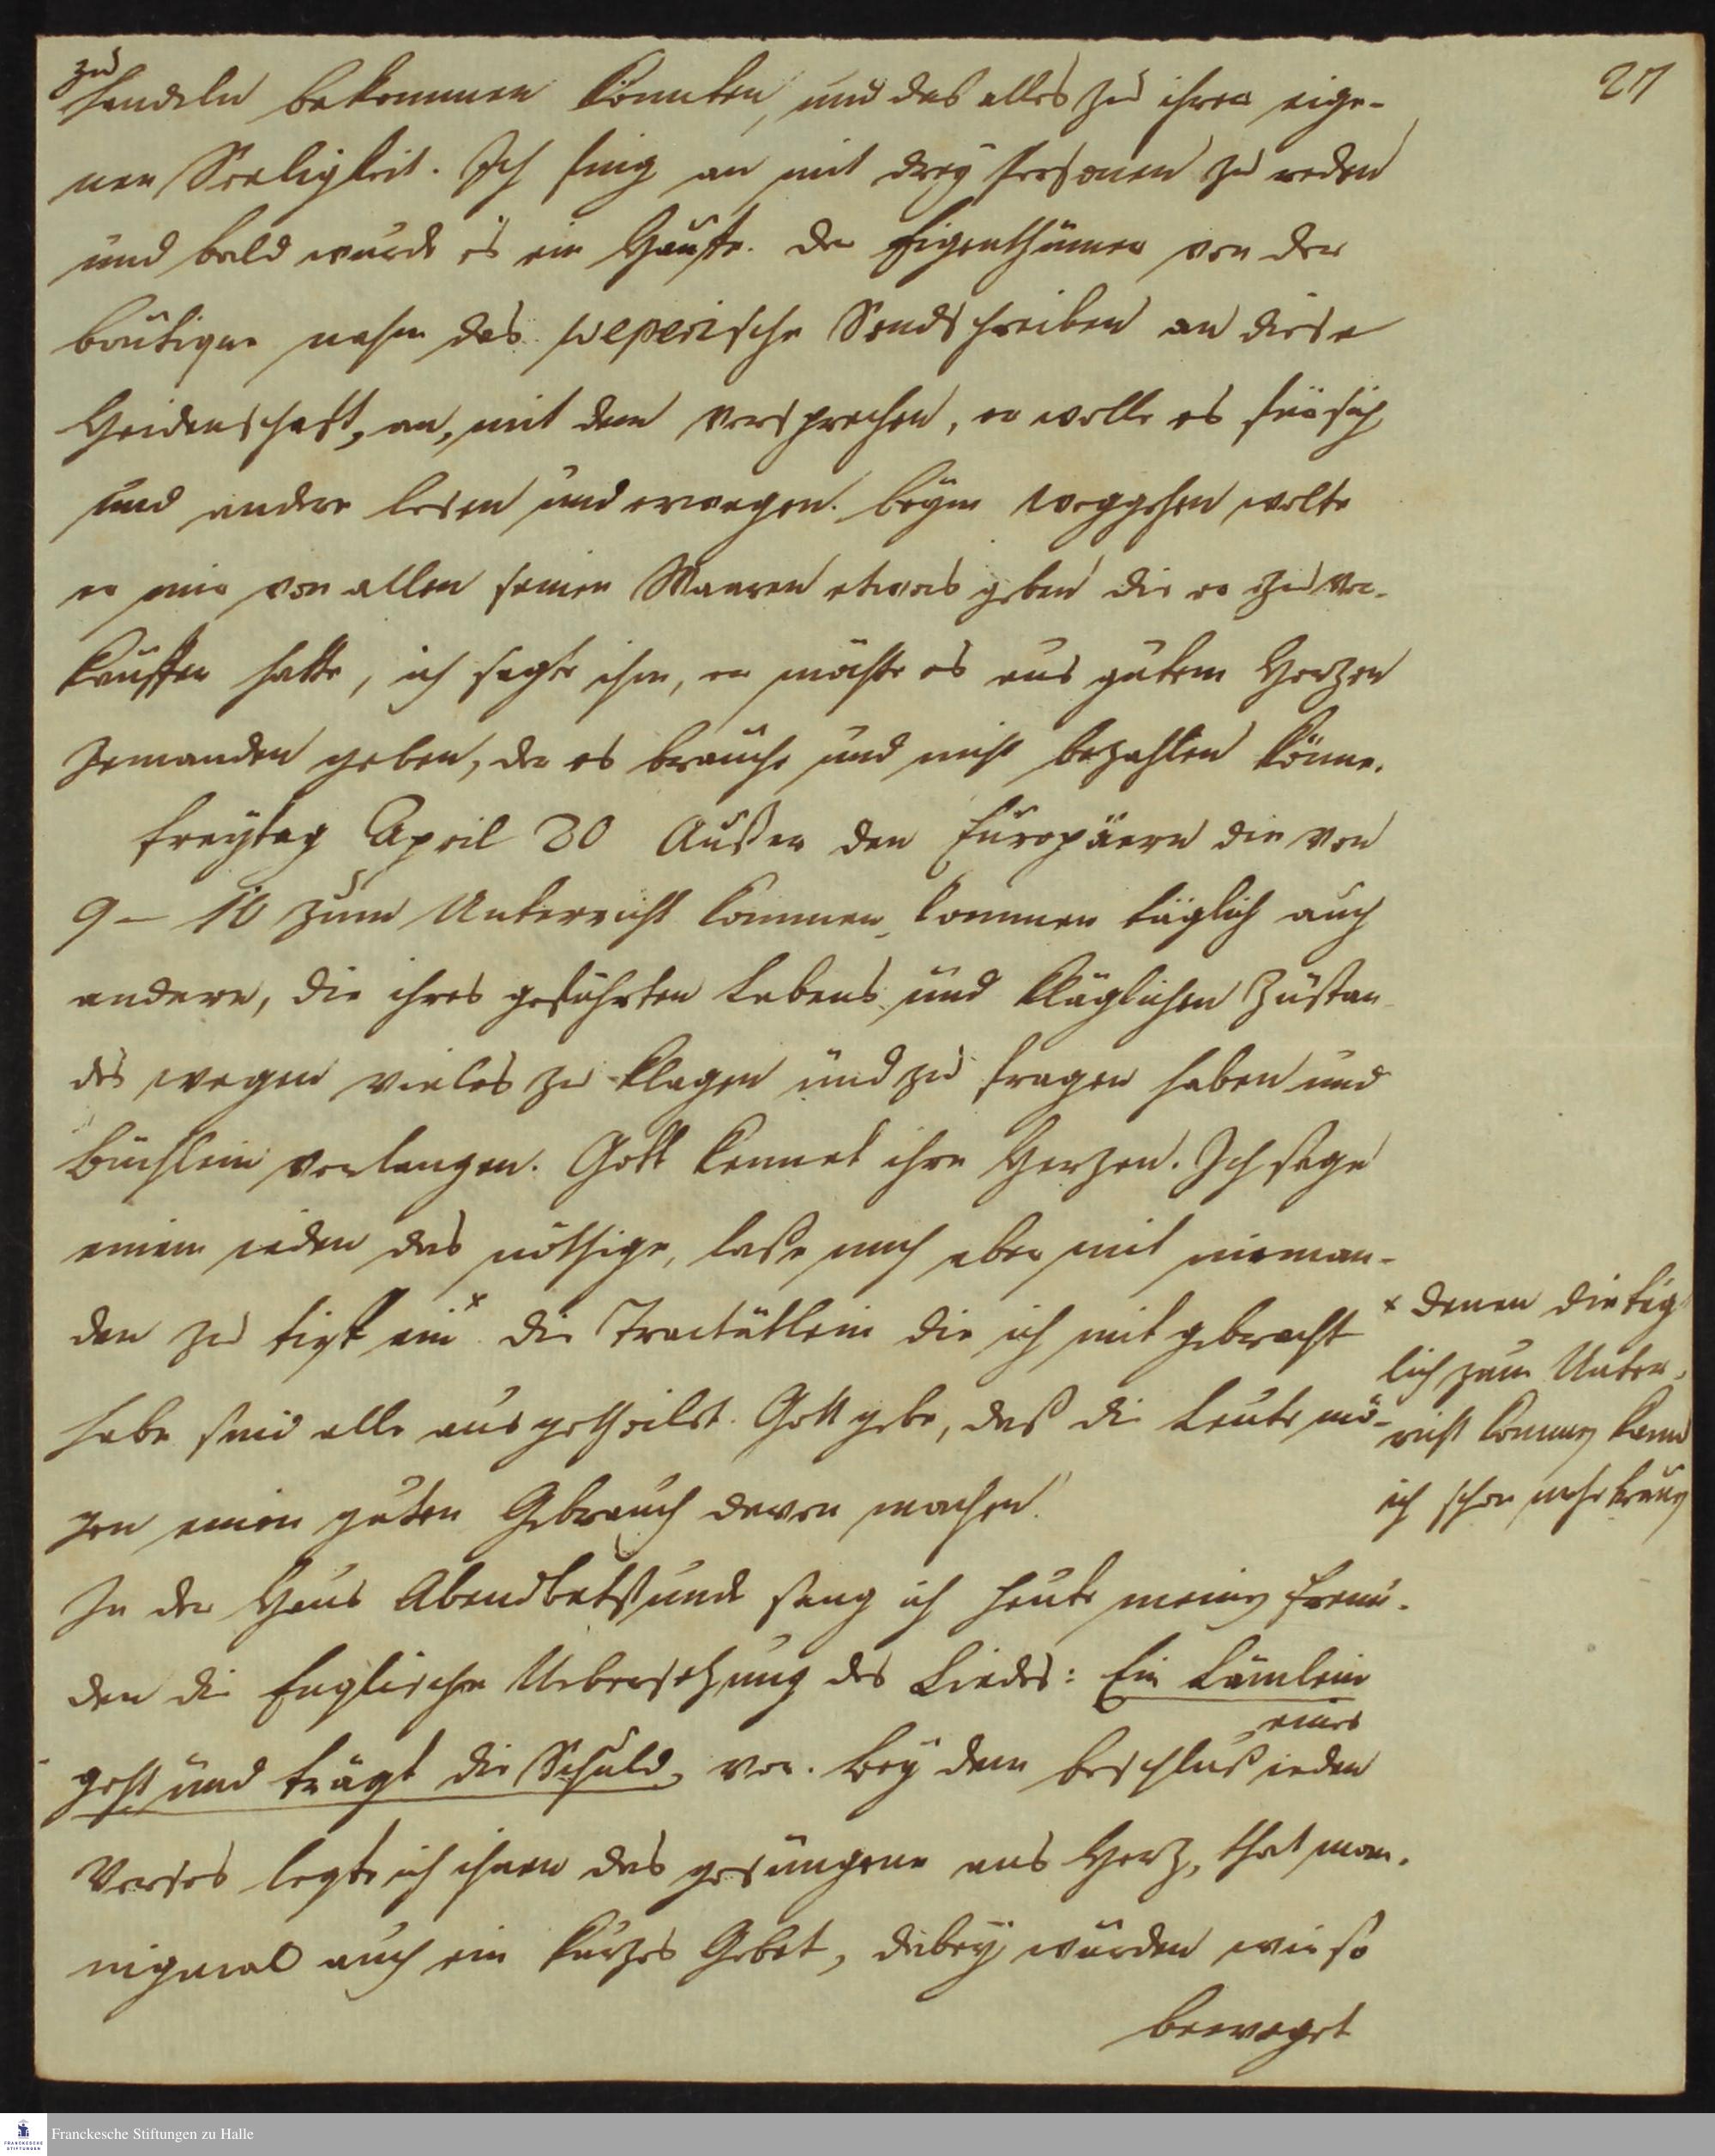 27
zu
handeln bekommen könnten, und das alles zu ihrer eige-
nen Seeligkeit. Ich fing an mit drey Personen zu reden
und bald wurde es ein Hauffe. Der Eigenthümer von der
boutique nahm das Sendschreiben an diese
Heidenschafft, an, mit dem versprechen, er wolle es für sich
und andere lesen und erwegen. beym weggehen wolte
er mir von allen seinen Waaren etwas geben die er zu ver-
kauffen hatte, ich sagte ihm, er möchte es aus gutem Herzen
Jemanden geben, der es brauche und nicht bezahlen könne.
Freytag April 30 Außer den Europäern die von
9 – 10 zum Unterricht kommen, kommen täglich auch
andere, die ihres geführten Lebens und kläglichen Zustan-
des wegen vieles zu klagen und zu fragen haben und
Büchlein verlangen. Gott kennet ihre Herzen. Ich sage
einem ieden das nöthige, laße mich aber mit nieman-
den zu tief ein x die Tractätlein die ich mit gebracht
habe sind alle ausgetheilet. Gott gebe, daß die Leute mö-
gen einen guten Gebrauch davon machen.
x denen die täg
lich zum Unter-
richt kommen kann
ich schon mehr trauen
In der Haus Abendbetstunde sang ich heute meinen Freun-
den die Englische Uebersetzung des Liedes: Ein Lämlein
geht und trägt die Schuld, vor. Bey dem beschluß eines ieden
Verses legte ich ihnen das gesungene ans Herz, that man-
nigmal auch ein kurzes Gebet, dabey wurden wir so
beweget
Franckesche Stiftungen zu Halle